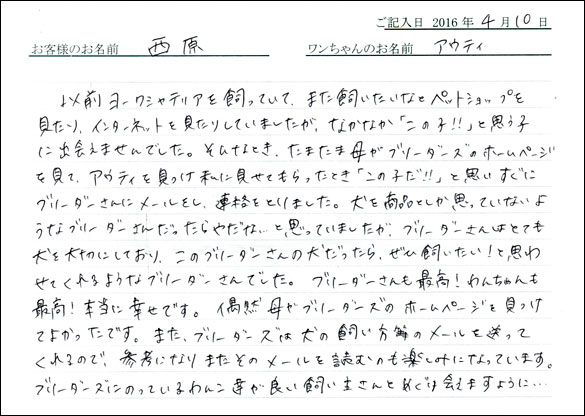 ご記入日 2016年 4月 10日
お客様のお名前 西原 ワンちゃんのお名前 アウティ
以前ヨークシャテリアを飼っていて、また飼いたいなとペットショップを
見たり、インターネットを見たりしていましたが、なかなか「この子!!」と思う子
に出会えませんでした。そんなとき、たまたま母がブリーダーズのホームページ
を見て、アウティを見つけ私に見せてもらったとき「この子だ!!」と思いすぐに
ブリーダーさんにメールをし、連絡をとりました。犬を商品としか思っていないよ
うなブリーダーさんだったらやだな…と思っていましたが、ブリーダーさんはとても
犬を大切にしており、このブリーダーさんの犬だったら、ぜひ飼いたい!と思わ
せてくれるようなブリーダーさんでした。ブリーダーさんも最高!わんちゃんも
最高!本当に幸せです。偶然母がブリーダーズのホームページを見つけ
てよかったです。また、ブリーダーズは犬の飼い方等のメールを送って
くれるので、参考になりまたそのメールを読むのも楽しみになっています。
ブリーダーズにのっているわんこ達が良い飼い主さんとめぐり会えますように…